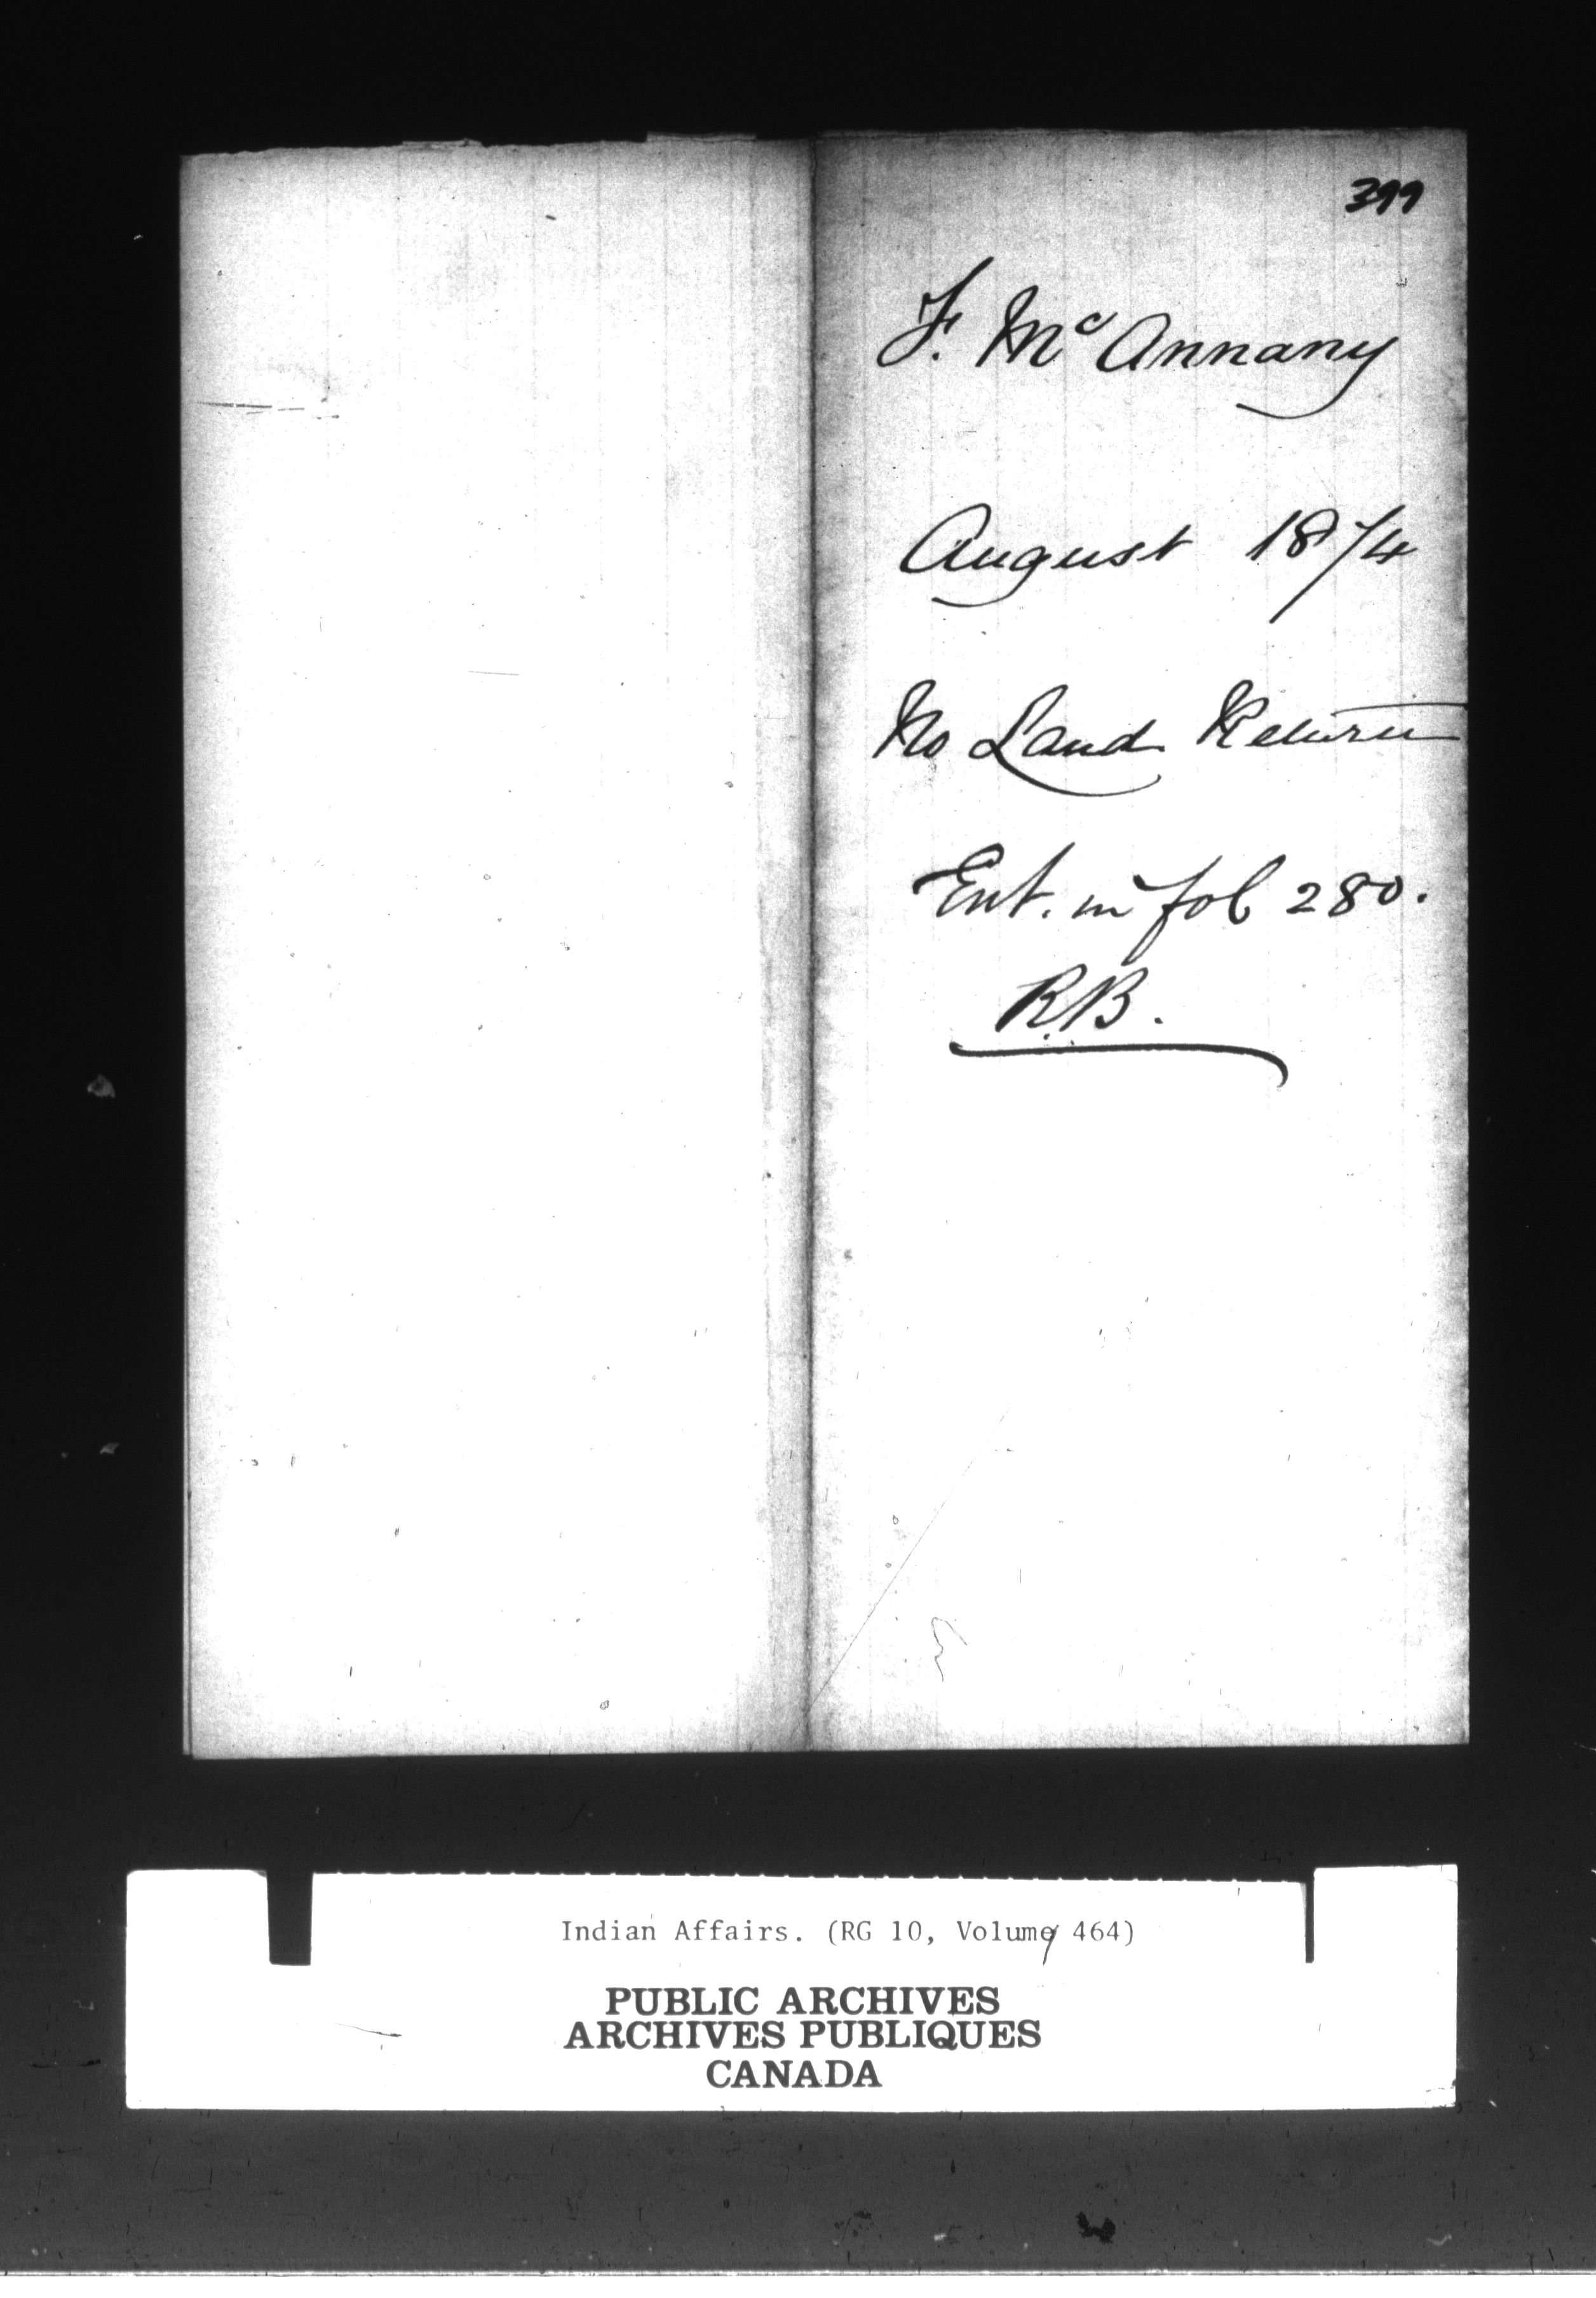 399
F. Mc Annany
August 1874
No Land Return
Ent. in fol 280.
R.B.
Indian Affairs. (RG 10, Volume 464)
PUBLIC ARCHIVES
ARCHIVES PUBLIQUES
CANADA